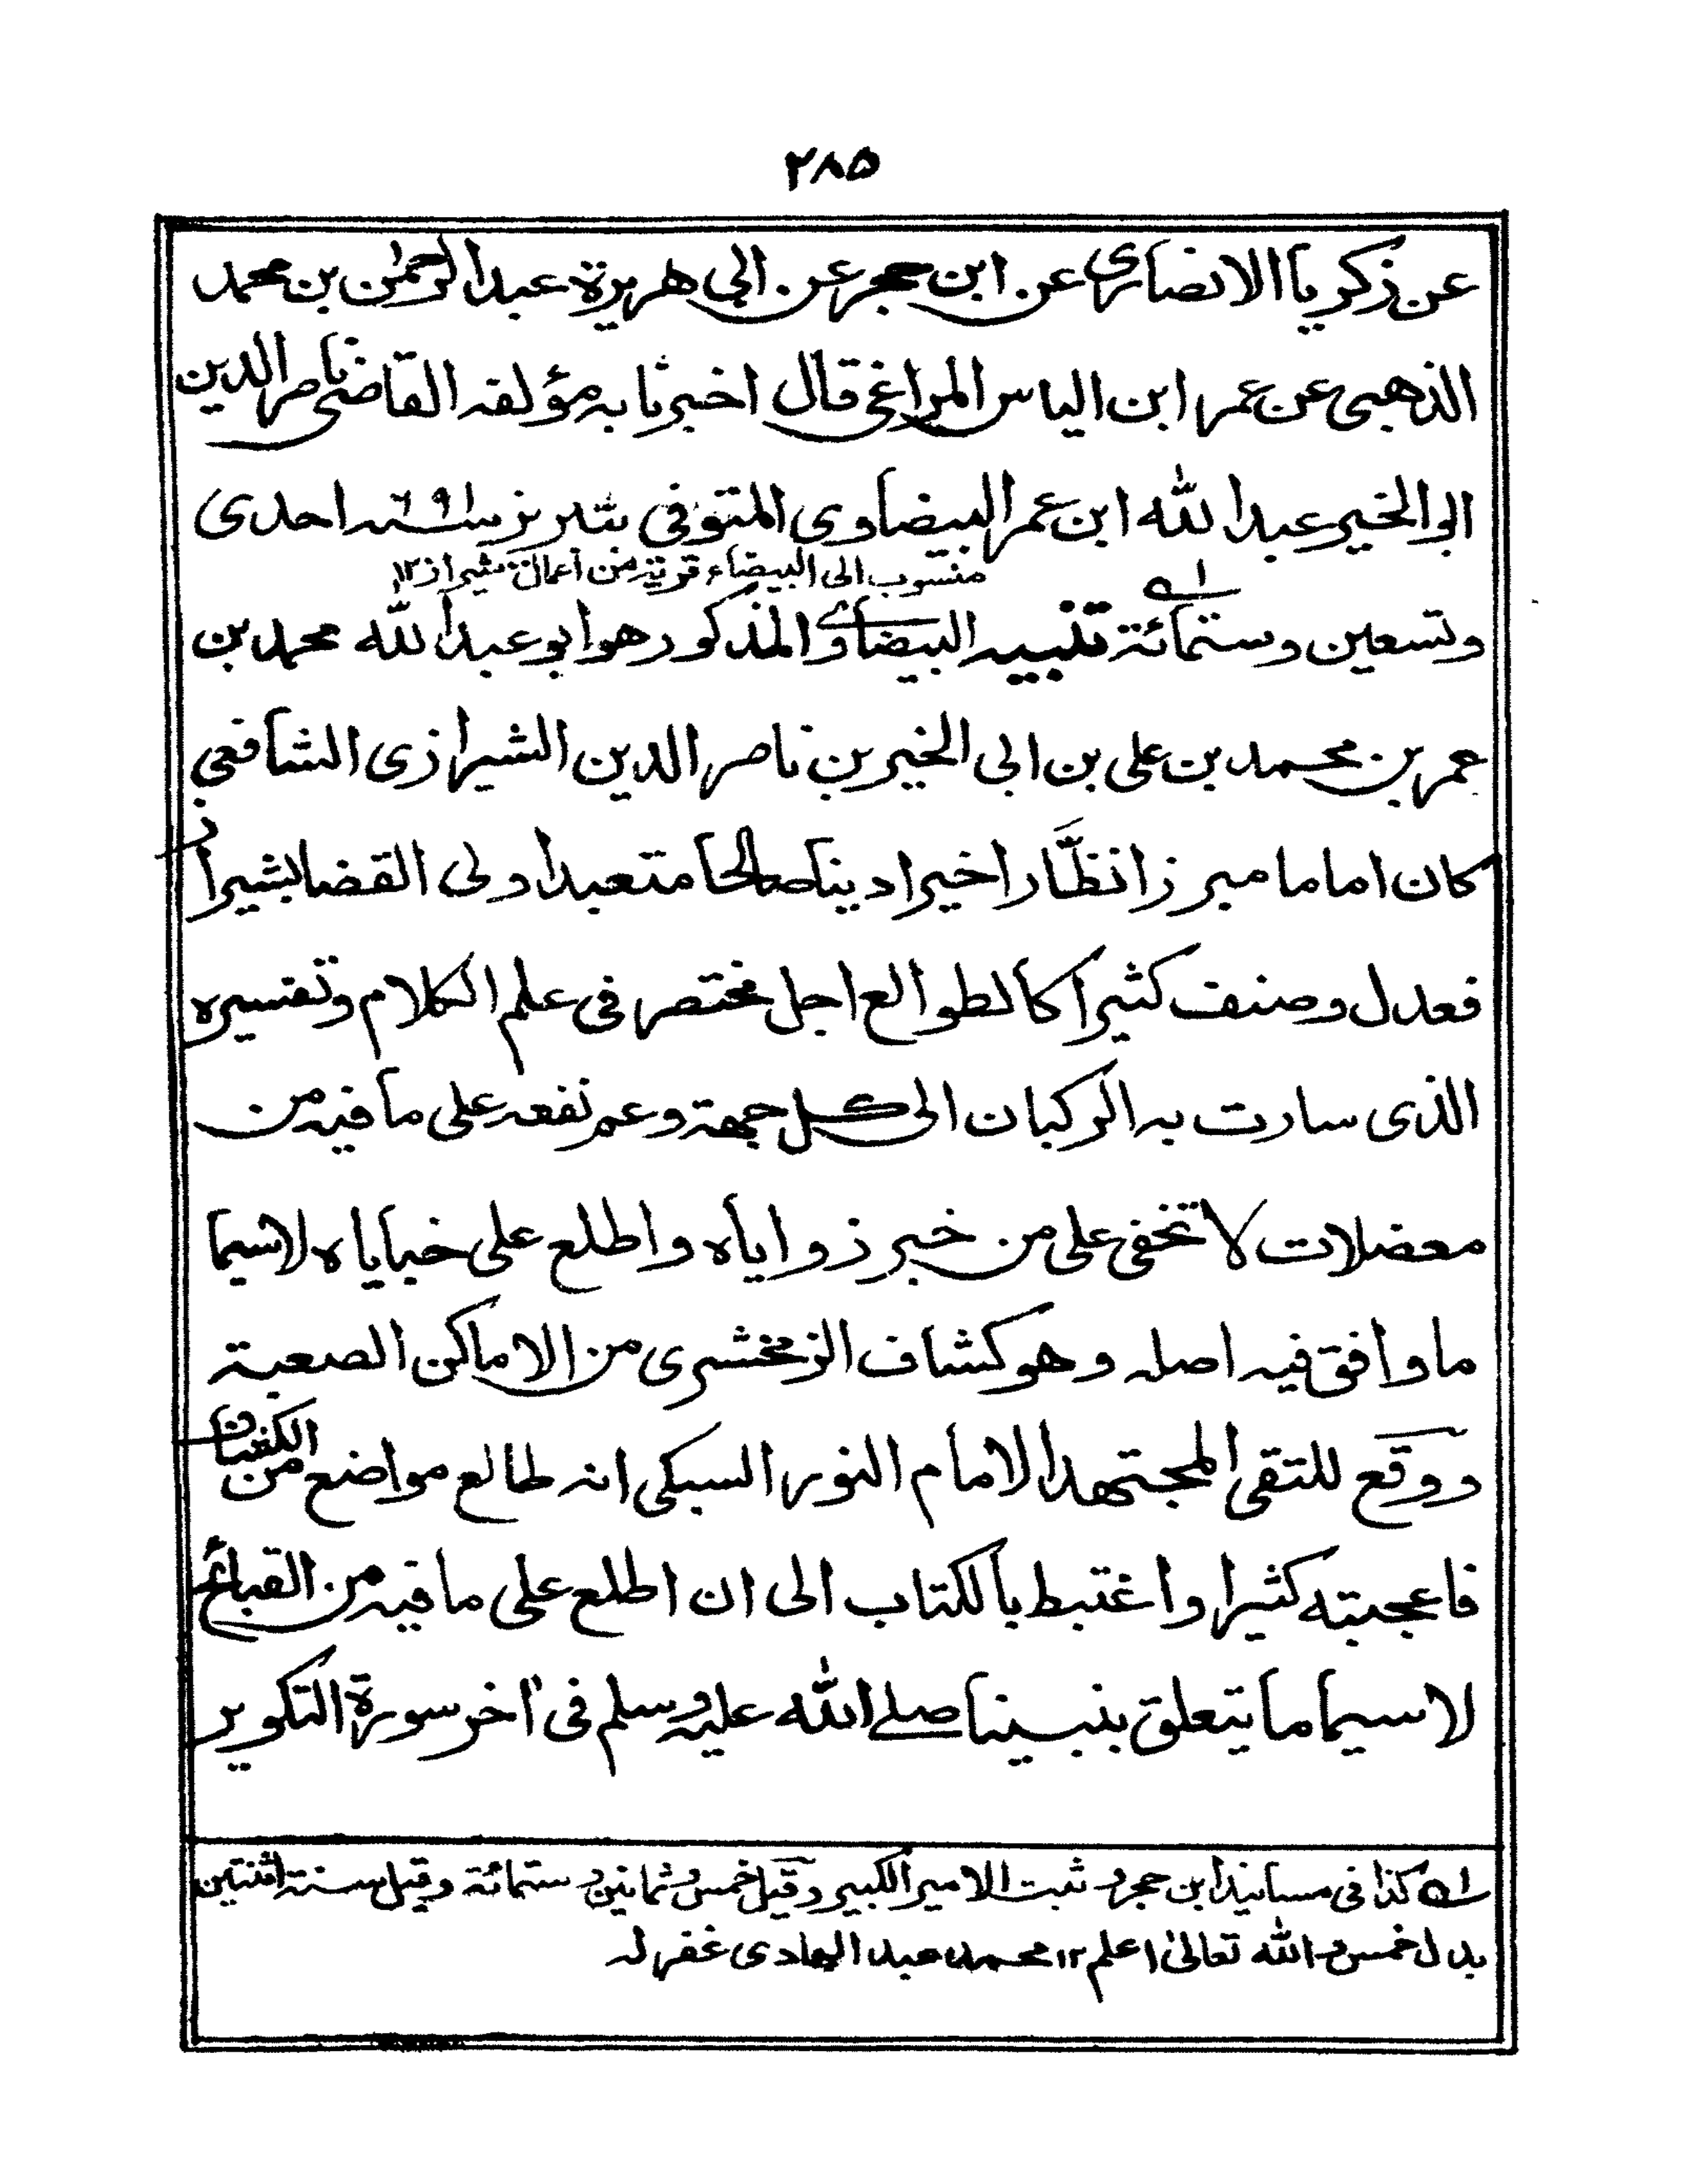 ٢٨٥
عن زكريا الانصاری عن ابن حجر عن ابي هريرة عبد الرحمٰن بن محمد
الذهبي عن عمر ابن الياس المراغي قال اخبرنا به مؤلفه القاضي ناصر الدين
ابو الخير عبد الله ابن عمر البيضاوی المتوفی بتبريز سنہ ٦٩١ احدی
منسوب الی البيضاء قرية من اعمال شيراز ١٢
وتسعين وستمائة تنبيه البيضاوی المذكور هو ابو عبد الله محمد بن
عمر بن محمد بن علی بن ابی الخير بن ناصر الدين الشيرازی الشافعی
كان اماما مبرزا نظَّارا خيرا دينا صالحا متعبدا ولی القضا بشيراز
فعدل وصنف كثيرا كالطوالع اجل مختصر فی علم الكلام وتفسيره
الذی سارت به الركبان الی كل جهة وعم نفعه علی ما فيه من
معضلات لا تخفی علی من خبر زواياه واطلع علی خباياه لاسيما
ما وافق فيه اصله وهو كشاف الزمخشری من الاماكن الصعبة
ووقع للتقی المجتهد الامام النور السبكی انه طالع مواضع من الكشاف
فاعجبته كثيرا واغتبط بالكتاب الی ان اطلع علی ما فيه من القبائح
لاسيما ما يتعلق بنبينا صلے الله عليه وسلم فی اٰخر سورة التكوير
لہ كذا فی مسانيد ابن حجر و ثبت الامير الكبير وقيل خمس وثمانين وستمائة وقيل سنة اثنتين
بدل خمس والله تعالیٰ اعلم ١٢ محمد عبد الهادی غفرله